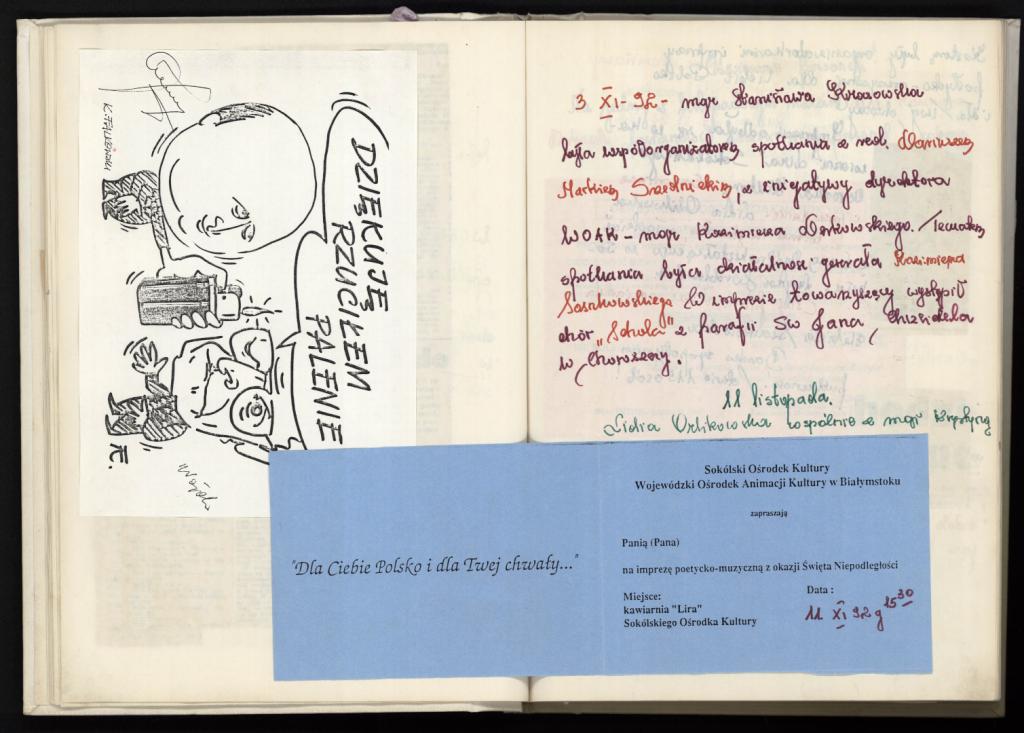 DZIĘKUJĘ
RZUCIŁEM
PALENIE
F.
3. XI - 92 - mgr Stanisława
była współorganizatorką spotkania z red.
z inicjatywy dyrektora
WOAK - mgr Kazimierza Derkowskiego. Tematem
spotkania była działalność generała Kazimierza
Sosnkowskiego W imprezie towarzyszącej wystąpił
chór "Schola" z parafii Św Jana Chrzciciela
w Choroszczy.
11 listopada.
Lidia wspólnie z mgr Krystyną
"Dla Ciebie Polsko i dla Twej chwały..."
Sokólski Ośrodek Kultury
Wojewódzki Ośrodek Animacji Kultury w Białymstoku
zapraszają
Panią (Pana)
na imprezę poetycko-muzyczną z okazji Święta Niepodległości
Miejsce:
kawiarnia "Lira"
Sokólskiego Ośrodka Kultury
Data :
11 XI 92 g 15 30